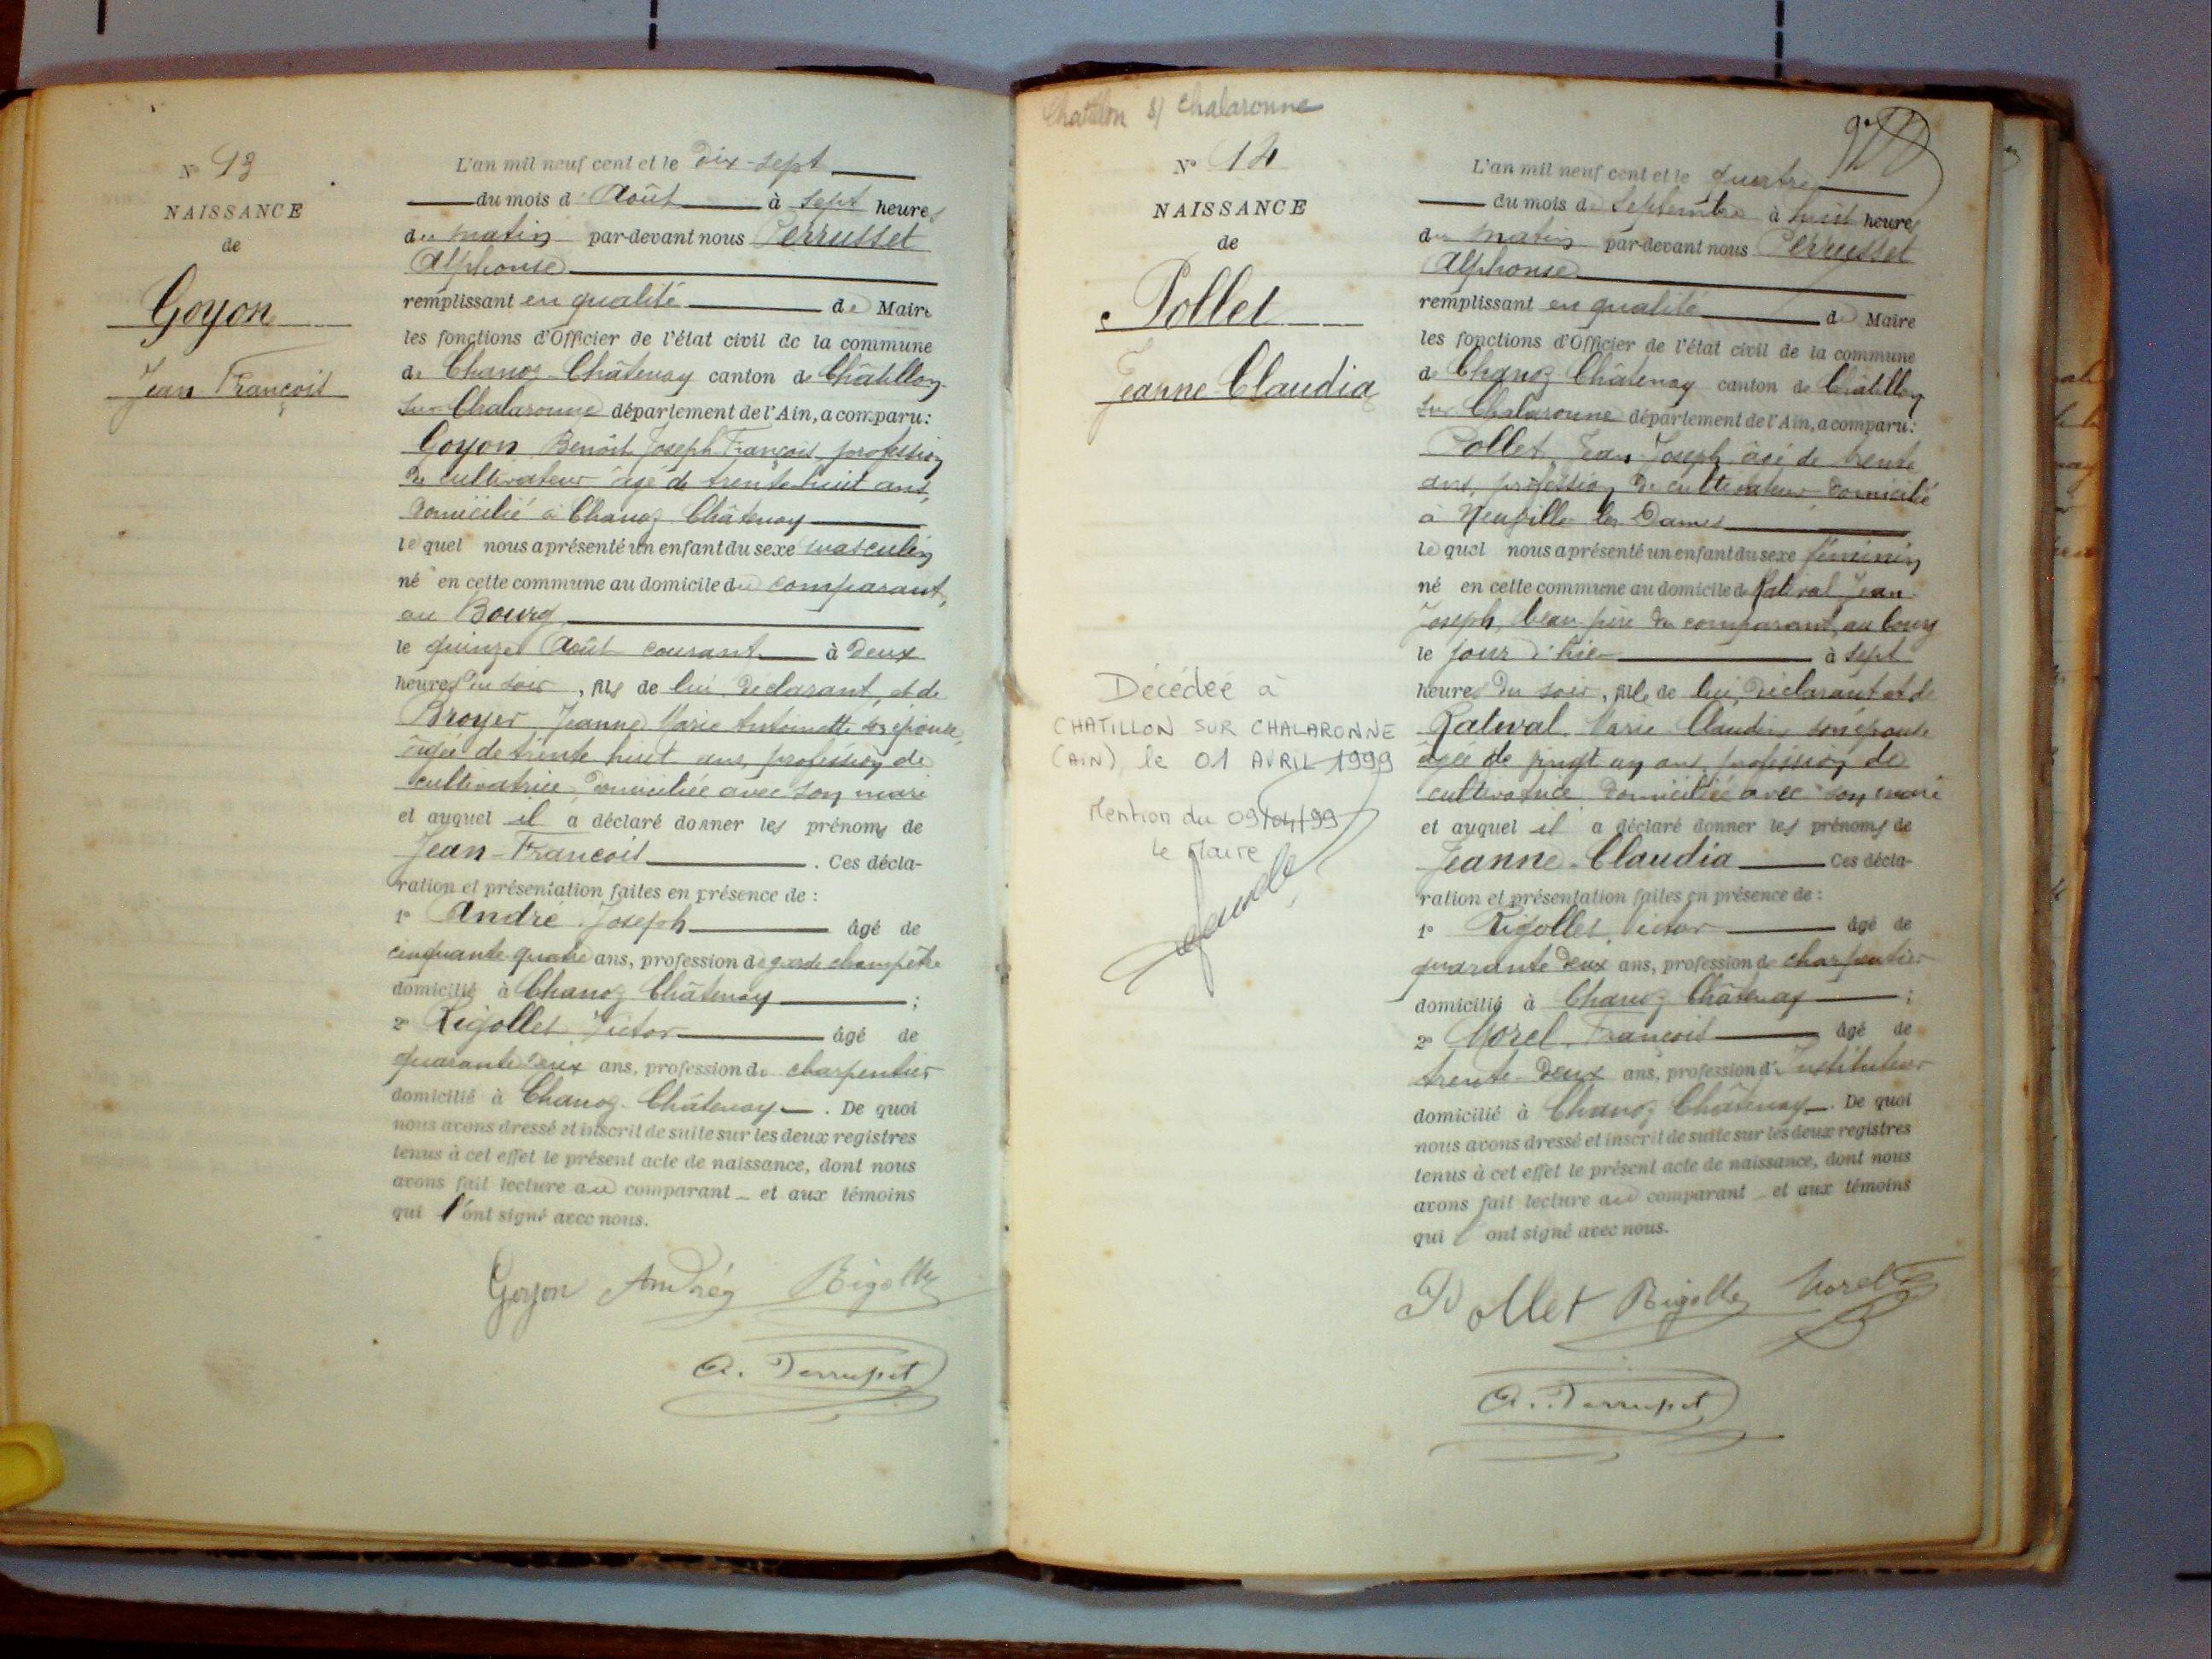 N° 13
NAISSANCE
de
Goyon
Jean François
L'an mil neuf cent et le dix-sept
du mois d'Août à sept heures
du matin par-devant nous Perrusset
Alphonse
remplissant en qualité de Maire
les fonctions d'Officier de l'état civil de la commune
de Chanoz-Châtenay canton de Châtillon
sur Chalaronne département de l'Ain, a comparu:
Goyon Benoît Joseph François, profession
de cultivateur âgé de trente huit ans,
domicilié à Chanoz Châtenay
lequel nous a présenté un enfant du sexe masculin
né en cette commune au domicile du comparant,
au Bourg
le quinze Août courant à deux
heures du soir, fils de lui déclarant, et de
Broyer Jeanne Marie Antoinette son épouse,
âgée de trente huit ans, profession de
cultivatrice, domiciliée avec son mari
et auquel il a déclaré donner les prénoms de
Jean-François. Ces décla-
ration et présentation faites en présence de :
1° André Joseph âgé de
cinquante quatre ans, profession de garde champêtre
domicilié à Chanoz Châtenay ;
2° Rigollet Victor âgé de
quarante deux ans, profession de charpentier
domicilié à Chanoz-Châtenay. De quoi
nous avons dressé et inscrit de suite sur les deux registres
tenus à cet effet le présent acte de naissance, dont nous
avons fait lecture au comparant et aux témoins
qui l'ont signé avec nous.
Goyon André Rigollet
A. Perrusset
Chatillon s/ Chalaronne
N° 14
NAISSANCE
de
Pollet
Jeanne Claudia
Décédée à
CHATILLON SUR CHALARONNE
(AIN), le 01 AVRIL 1999
Mention du 09/04/99
Le Maire
L'an mil neuf cent et le quatre
du mois de Septembre à huit heures
du matin par-devant nous Perrusset
Alphonse
remplissant en qualité de Maire
les fonctions d'Officier de l'état civil de la commune
de Chanoz Châtenay canton de Châtillon
sur Chalaronne département de l'Ain, a comparu:
Pollet, Jean Joseph, âgé de trente
ans, profession de cultivateur domicilié
à Neuville les Dames
lequel nous a présenté un enfant du sexe féminin
né en cette commune au domicile de Rateval Jean
Joseph, beau-père du comparant, au bourg
le jour d'hier à sept
heures du soir, fille de lui, déclarant et de
Rateval Marie Claudia son épouse
âgée de vingt un ans, profession de
cultivatrice domiciliée avec son mari
et auquel il a déclaré donner les prénoms de
Jeanne-Claudia Ces décla-
ration et présentation faites en présence de :
1° Rigollet Victor âgé de
quarante deux ans, profession de charpentier
domicilié à Chanoz Châtenay ;
2° Morel François âgé de
trente-deux ans, profession d'Instituteur
domicilié à Chanoz Châtenay. De quoi
nous avons dressé et inscrit de suite sur les deux registres
tenus à cet effet le présent acte de naissance, dont nous
avons fait lecture au comparant et aux témoins
qui l'ont signé avec nous.
Pollet Rigollet Morel
A. Perrusset